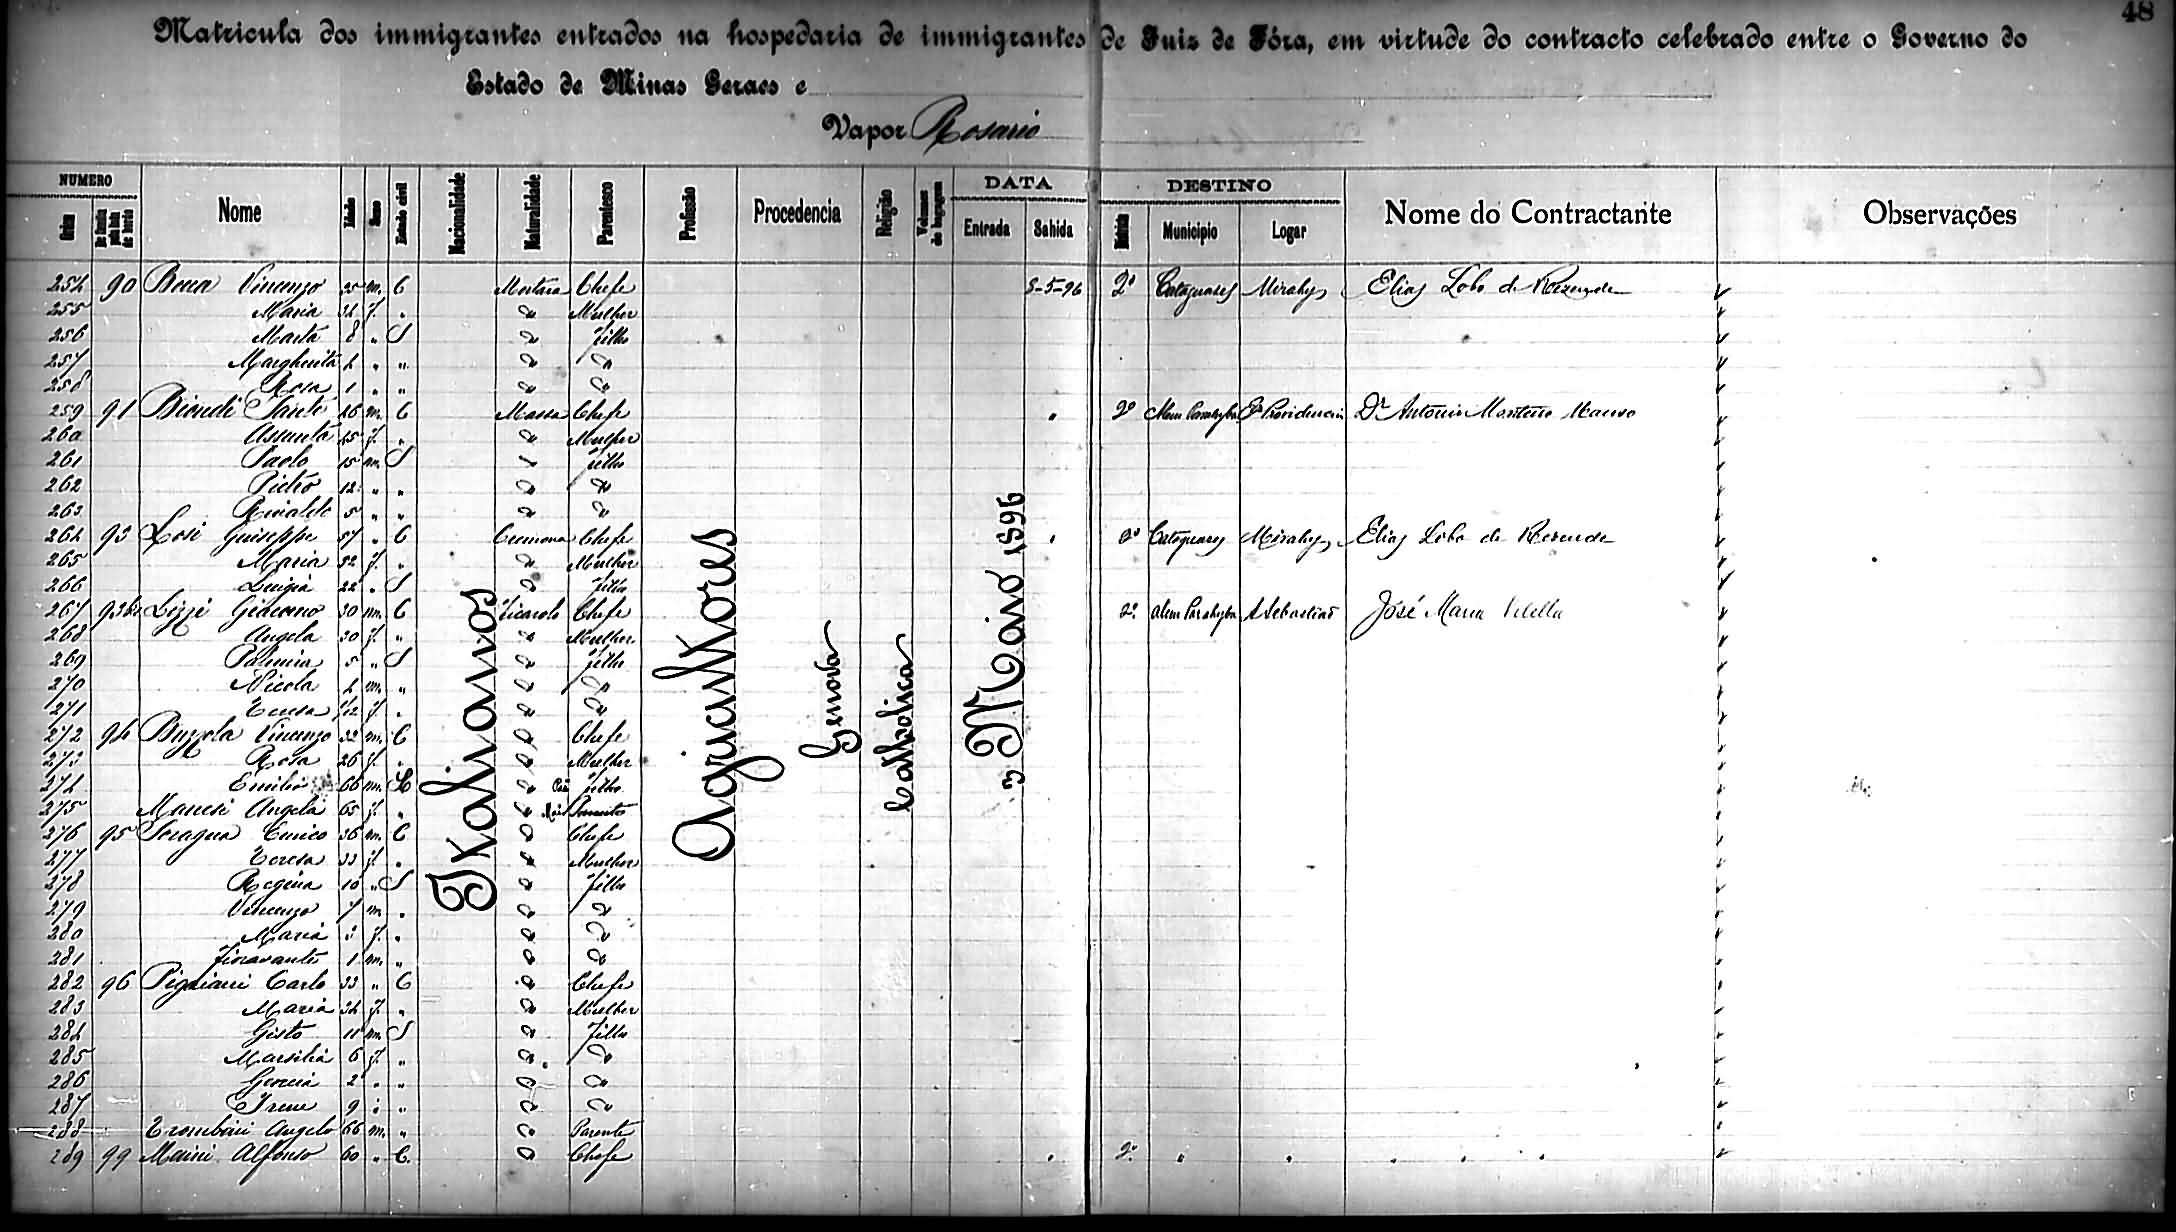 48
Matricula dos immigrantes entrados na hospedaria de immigrantes de Juiz de Fóra, em virtude do contracto celebrado entre o Governo do
Estado de Minas Geraes e
Vapor Rosario
NUMERO Nome Idade Sexo Estado civil Nacionalidade Naturalidade Parentesco Profissão Procedencia Religião Volumes de bagagem DATA Entrada Sahida DESTINO Municipio Logar Nome do Contractante Observações
Italianos
Agricultores
Genova
Catholica
3 Maio 1896
254 90 Vincenzo 35 m. C Mortara Chefe 8-5-96 2º Cataguases Mirahy Elias Lobo de Rezende
255 Maria 34 f. " " Mulher
256 Marta 8 " S " filho
257 Margherita 4 " " " "
258 Rosa 1 " " " "
259 91 Biondi Sante 46 m. C Massa Chefe " 2º Alem Parahyba Fª Providencia Dr Antonio Monteiro Manso
260 Assunta 45 f. " " Mulher
261 Paolo 15 m. S " filho
262 Pietro 12 " " " "
263 Rinaldo 5 " " " "
264 93 Losi Guiseppe 57 " C Cremona Chefe " 2º Cataguases Mirahy Elias Lobo de Rezende
265 Maria 52 f. " " Mulher
266 Luigia 22 " S " filha
267 Lizzi Giacomo 30 m. C Chefe 2º Alem Parahyba S Sebastião José Maria Villella
268 Angela 30 f. " " Mulher
269 Palmira 5 " S " filha
270 Nicola 4 m. " " "
271 Teresa f. " " "
272 94 Buzzola Vincenzo 32 m. C " Chefe
273 Rosa 26 f. " " Mulher
274 Emilio 66 m. " Pai filho
275 Manesi Angela 65 f. " " Mãi Parente
276 95 Enrico 36 m. C " Chefe
277 Teresa 33 f. " " Mulher
278 Regina 10 " S " filha
279 Vincenzo 7 m. " " "
280 Maria 3 f. " " "
281 Fioravante 1 m. " " "
282 96 Carlo 33 " C " Chefe
283 Maria 34 f. " " Mulher
284 Gisto 11 m. S " filho
285 Marsilia 6 f. " " "
286 2 " " " "
287 Irene 9 " " " "
288 Trombini Angelo 66 m. " " Parente
289 99 Maini Alfonso 60 " C. " Chefe " 2º " " " " " "